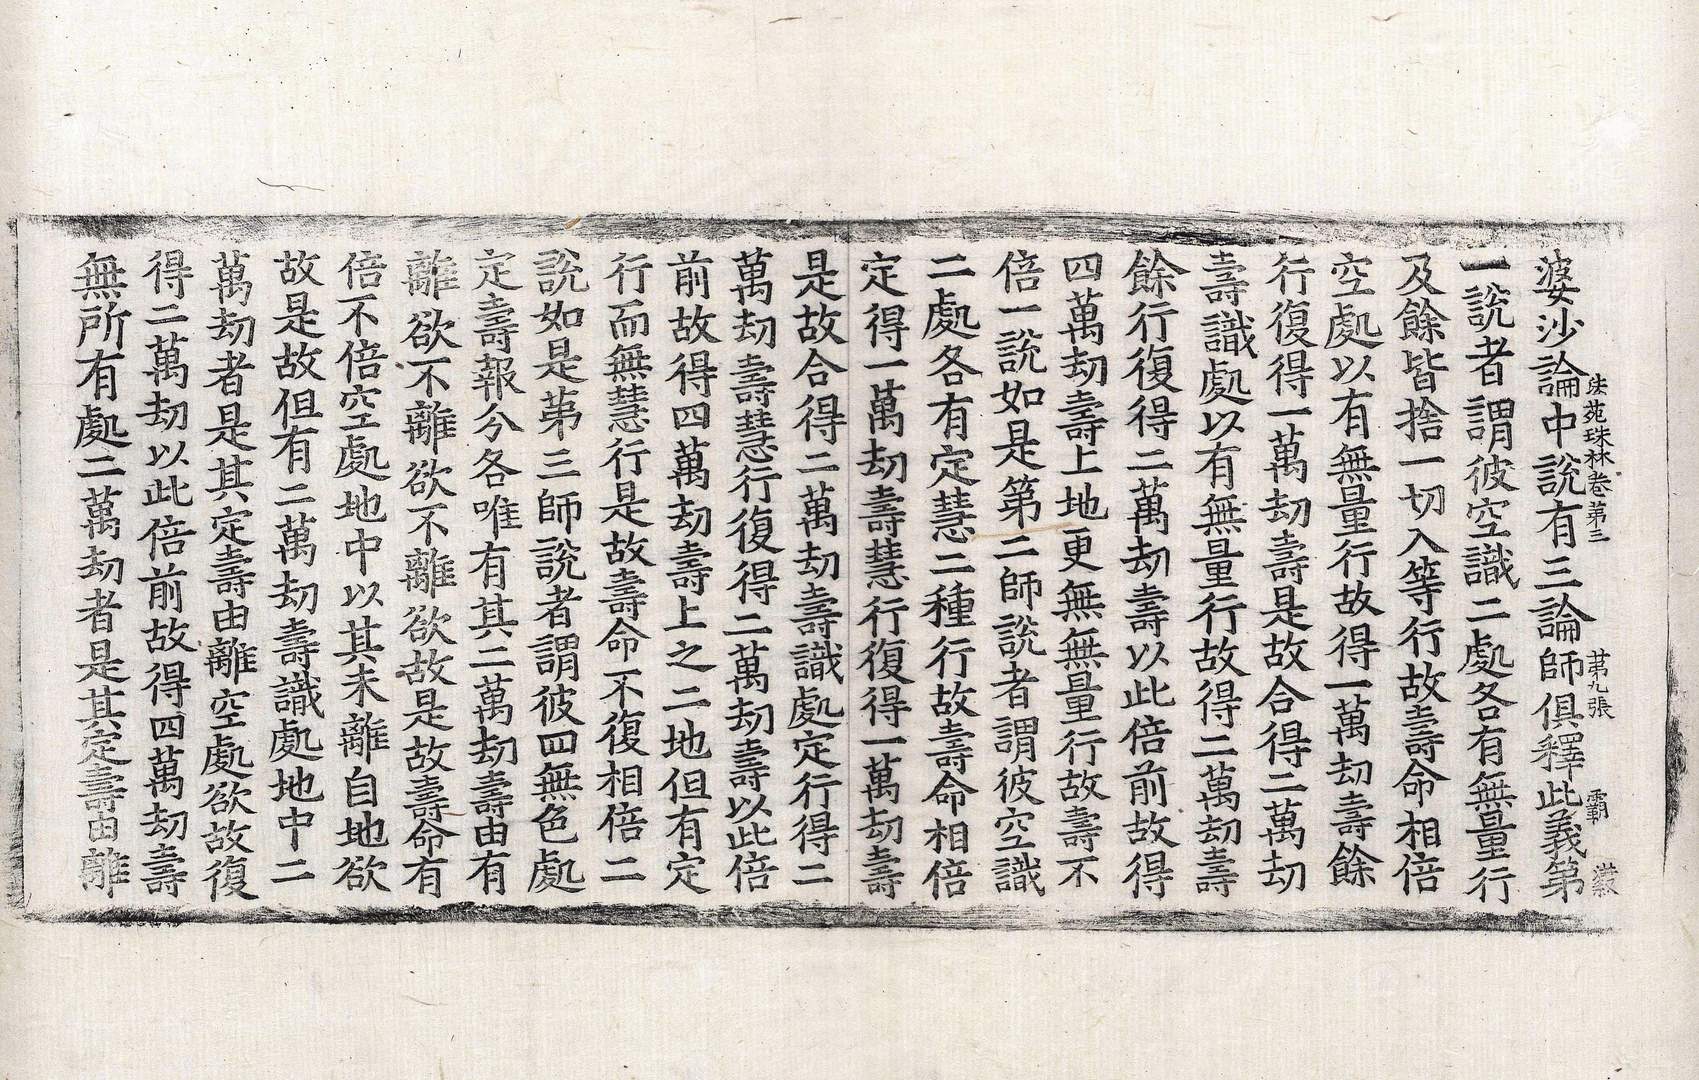 法苑珠林卷第三 第九張 霸
婆沙論中說有三論師俱釋此義第
一說者謂彼空識二處各有無量行
及餘皆捨一切入等行故壽命相倍
空處以有無量行故得一萬劫壽餘
行復得一萬劫壽是故合得二萬劫
壽識處以有無量行故得二萬劫壽
餘行復得二萬劫壽以此倍前故得
四萬劫壽上地更無無量行故壽不
倍一說如是第二師說者謂彼空識
二處各有定慧二種行故壽命相倍
定得一萬劫壽慧行復得一萬劫壽
是故合得二萬劫壽識處定行得二
萬劫壽慧行復得二萬劫壽以此倍
前故得四萬劫壽上之二地但有定
行而無慧行是故壽命不復相倍二
說如是第三師說者謂彼四無色處
定壽報分各唯有其二萬劫壽由有
離欲不離欲不離欲故是故壽命有
倍不倍空處地中以其未離自地欲
故是故但有二萬劫壽識處地中二
萬劫者是其定壽由離空處欲故復
得二萬劫以此倍前故得四萬劫壽
無所有處二萬劫者是其定壽由離